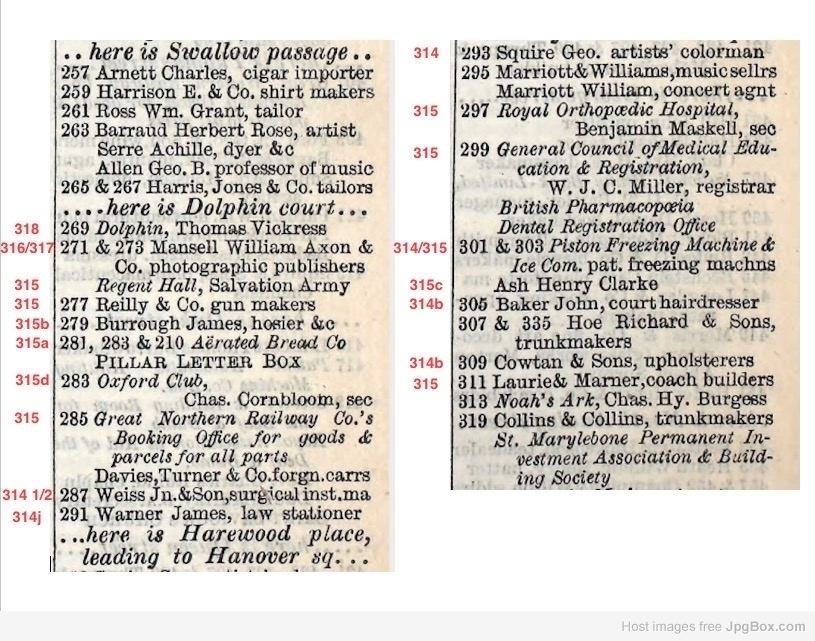 . . here is Swallow passage . .
257 Arnett Charles, cigar importer
259 Harrison E. & Co. shirt makers
261 Ross Wm. Grant, tailor
263 Barraud Herbert Rose, artist
Serre Achille, dyer &c
Allen Geo. B. professor of music
265 & 267 Harris, Jones & Co. tailors
. . . . here is Dolphin court . . .
318 269 Dolphin, Thomas Vickress
316/317 271 & 273 Mansell William Axon &
Co. photographic publishers
315 Regent Hall, Salvation Army
315 277 Reilly & Co. gun makers
315b 279 Burrough James, hosier &c
315a 281, 283 & 210 Aërated Bread Co
PILLAR LETTER BOX
315d 283 Oxford Club,
Chas. Cornbloom, sec
315 285 Great Northern Railway Co.'s
Booking Office for goods &
parcels for all parts
Davies, Turner & Co. forgn. carrs
314 1/2 287 Weiss Jn. & Son, surgical inst. ma
314j 291 Warner James, law stationer
. . . here is Harewood place,
leading to Hanover sq. . .
314 293 Squire Geo. artists' colorman
295 Marriott & Williams, music sellrs
Marriott William, concert agnt
315 297 Royal Orthopædic Hospital,
Benjamin Maskell, sec
315 299 General Council of Medical Edu-
cation & Registration,
W. J. C. Miller, registrar
British Pharmacopœia
Dental Registration Office
314/315 301 & 303 Piston Freezing Machine &
Ice Com. pat. freezing machns
315c Ash Henry Clarke
314b 305 Baker John, court hairdresser
307 & 335 Hoe Richard & Sons,
trunkmakers
314b 309 Cowtan & Sons, upholsterers
315 311 Laurie & Marner, coach builders
313 Noah's Ark, Chas. Hy. Burgess
319 Collins & Collins, trunkmakers
St. Marylebone Permanent In-
vestment Association & Build-
ing Society
Host images free JpgBox.com